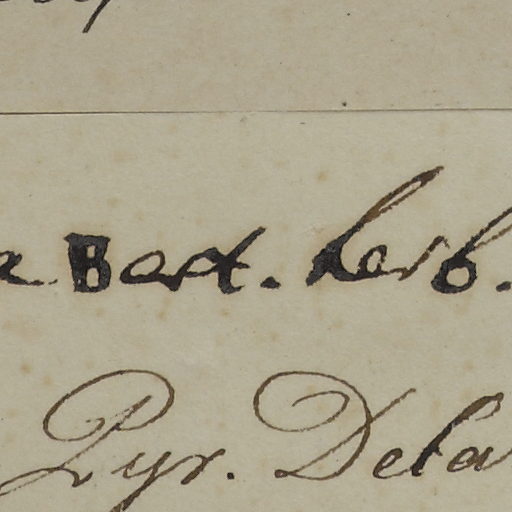 a Bart. herb.
Pyr. Dela